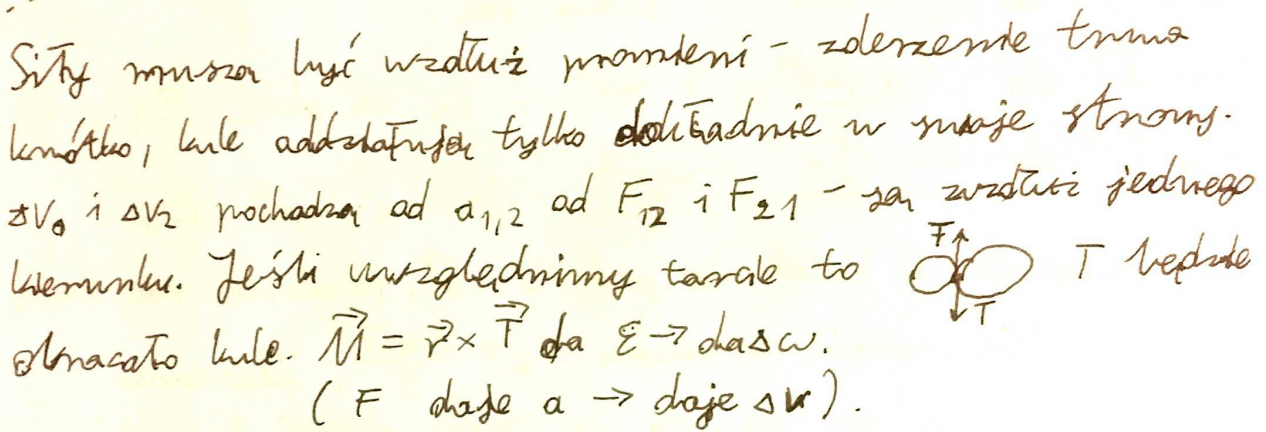 Siły muszą być wzdłuż promieni - zderzenie trwa
krótko, kule oddziałują tylko dokładnie w swoje strony.
ΔV₀ i ΔV₂ pochodzą od a₁,₂ od F₁₂ i F₂₁ - są wzdłuż jednego
kierunku. Jeśli uwzględnimy tarcie to F T T będzie
obracało kule. M⃗ = r⃗ × T⃗ da ε → da Δω.
(F daje a → daje ΔV).